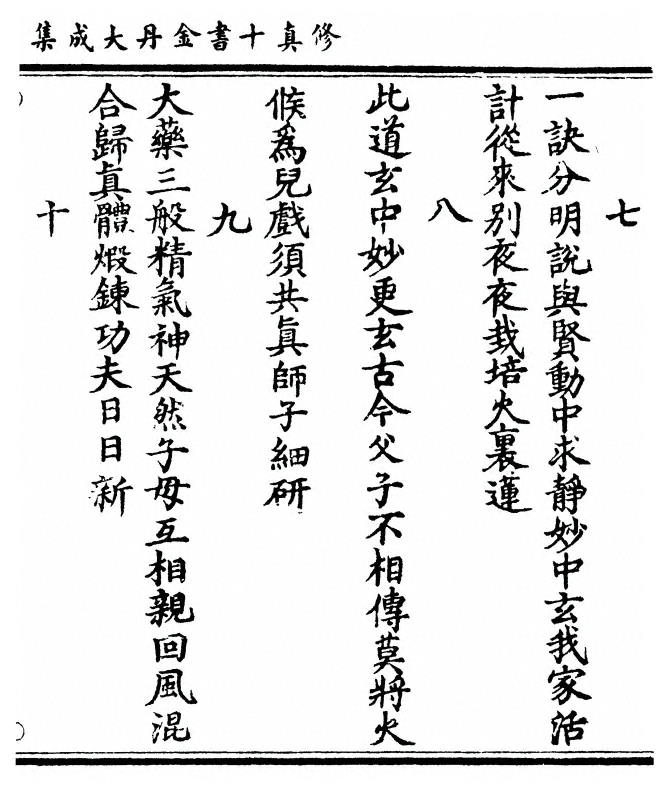 修真十書金丹大成集
七
一訣分明說與賢動中求靜妙中玄我家活
計從來別夜夜栽培火裏蓮
八
此道玄中妙更玄古今父子不相傳莫將火
候爲兒戲須共眞師子細研
九
大藥三般精氣神天然子母互相親回風混
合歸眞體煅鍊功夫日日新
十